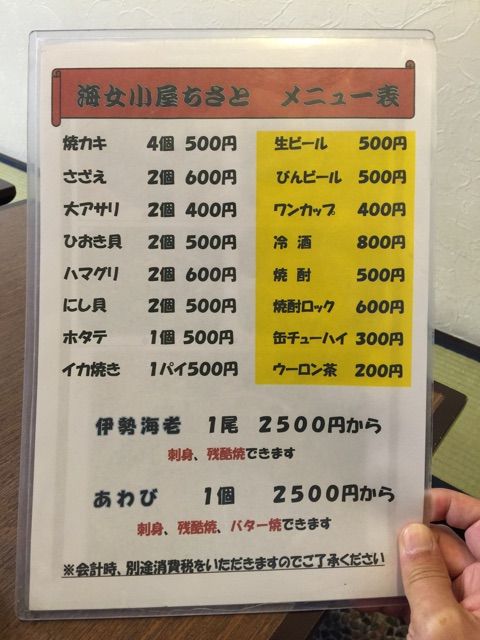 海女小屋ちさと メニュー表
焼カキ 4個 500円
さざえ 2個 600円
大アサリ 2個 400円
ひおき貝 2個 500円
ハマグリ 2個 600円
にし貝 2個 500円
ホタテ 1個 500円
イカ焼き 1パイ500円
生ビール 500円
びんビール 500円
ワンカップ 400円
冷酒 800円
焼酎 500円
焼酎ロック 600円
缶チューハイ 300円
ウーロン茶 200円
伊勢海老 1尾 2500円から
刺身、残酷焼できます
あわび 1個 2500円から
刺身、残酷焼、バター焼できます
※会計時、別途消費税をいただきますのでご了承ください